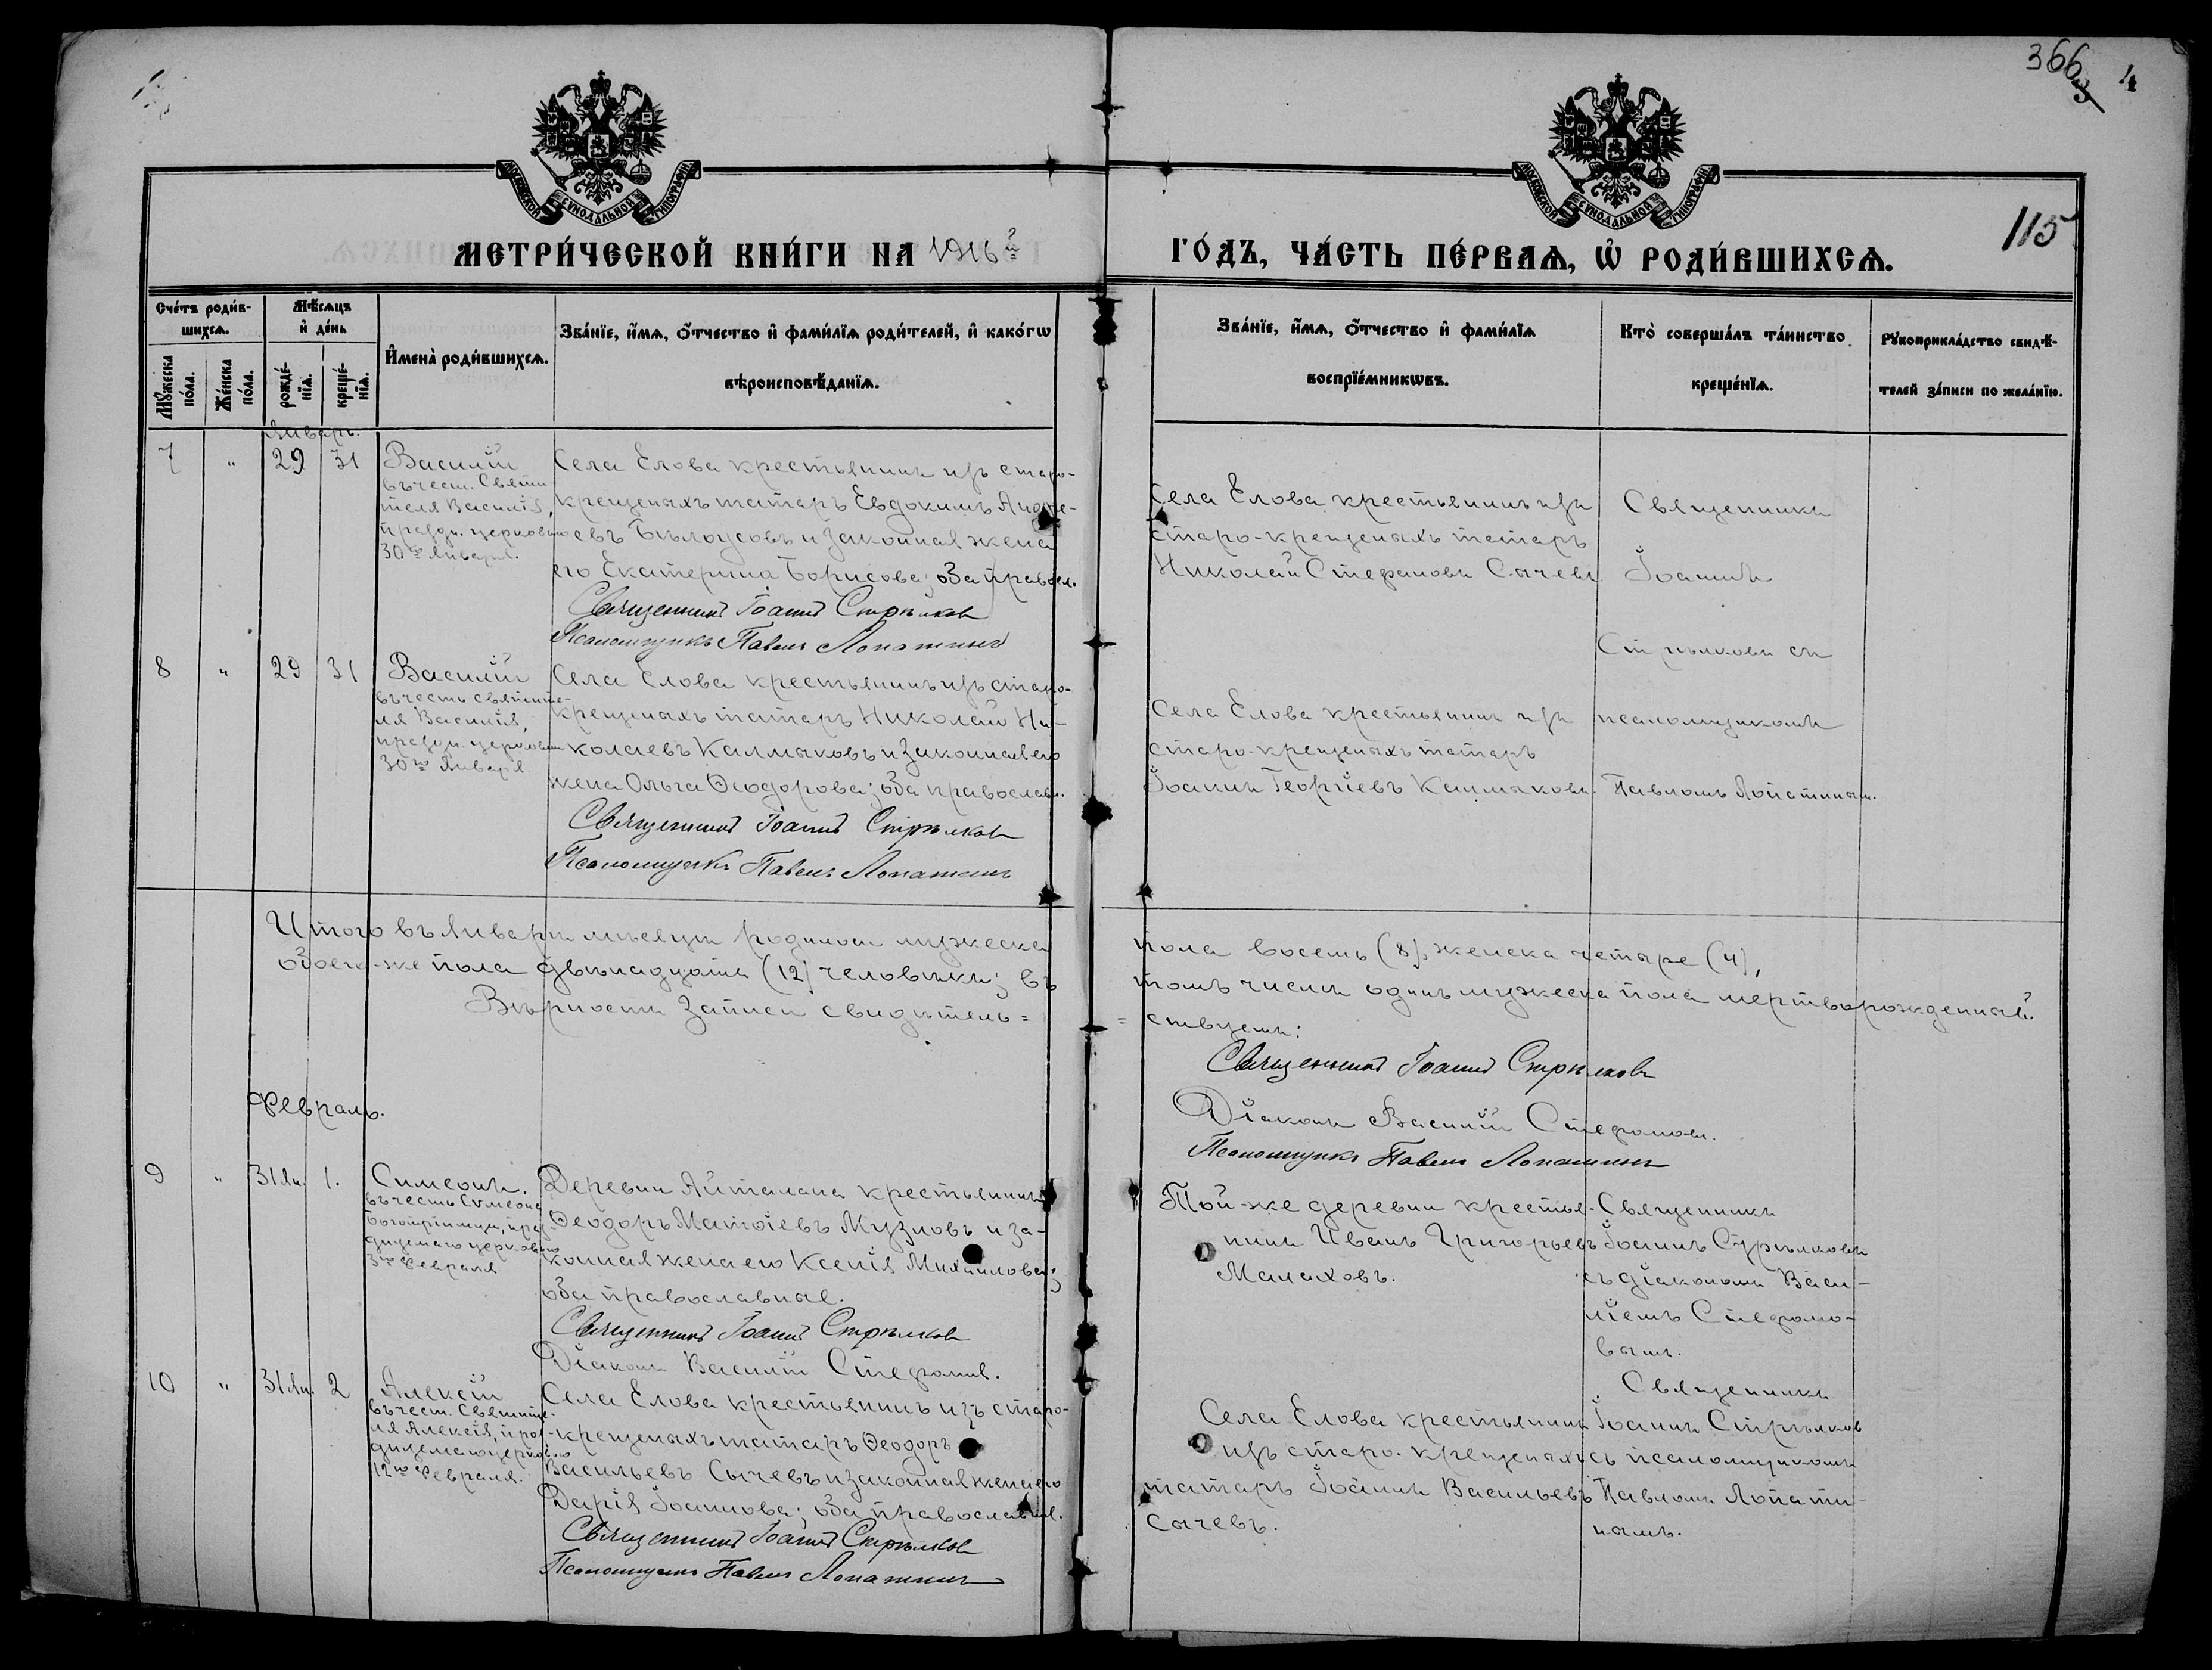 366
3
4
115
МОСКОВСКОЙ СѴНОДАЛЬНОЙ ТИПОГРАФІИ
МОСКОВСКОЙ СѴНОДАЛЬНОЙ ТИПОГРАФІИ
МЕТРИ́ЧЕСКОЙ КНИ́ГИ НА 1916й
ГО́ДЪ, ЧА́СТЬ ПЕ́РВАѦ, Ѡ҆ РОДИ́ВШИХСѦ.
Сче́тъ роди́в-
шихсѧ.
Мꙋ́жеска по́ла.
Же́нска по́ла.
Мѣ́сѧцъ
и҆ де́нь
рожде́-
нїѧ.
креще́-
нїѧ.
И҆мена̀ роди́вшихсѧ.
Зва́нїе, и҆́мѧ, ѻ҆́тчество и҆ фами́лїѧ роди́телей, и҆ како́гѡ
вѣроисповѣ́данїѧ.
Зва́нїе, и҆́мѧ, ѻ҆́тчество и҆ фами́лїѧ
воспрїе́мникѡвъ.
Кто̀ соверша́лъ та́инство
креще́нїѧ.
Рꙋкоприкла́дство свидѣ́-
телей за́писи по жела́нїю.
Январь.
7 " 29 31
Василій
въ чест. Святи-
теля Василія,
праздн. церковью
30го Января.
Села Елова крестьянинъ изъ старо-
крещеныхъ татаръ Евдокимъ Андре-
евъ Бѣлоусовъ и законная жена
его Екатерина Борисова; оба правосл.
Священникъ Іоаннъ Стрѣлковъ
Псаломщикъ Павелъ Лопатинъ
Села Елова крестьянинъ изъ
старо-крещеныхъ татаръ
Николай Стефановъ Сычевъ
Священникъ
Іоаннъ
Стрѣлковъ съ
8 " 29 31
Василій
въ честь святите-
ля Василія,
праздн. церковью
30го Января
Села Елова крестьянинъ изъ старо-
крещеныхъ татаръ Николай Ни-
колаевъ Калмыковъ и законная его
жена Ольга Ѳеодорова; оба православн.
Священникъ Іоаннъ Стрѣлковъ
Псаломщикъ Павелъ Лопатинъ
Села Елова крестьянинъ изъ
старо-крещеныхъ татаръ
Іоаннъ Георгіевъ Калмыковъ.
псаломщикомъ
Павломъ Лопатинымъ.
Итого въ Январѣ мѣсяцѣ родилось мужеска
пола восемь (8), женска четыре (4),
обоего-же пола двѣнадцать (12) человѣкъ; въ
томъ числѣ одинъ мужеска пола мертворожденный.
Вѣрность записи свидѣтель=
=ствуемъ:
Священникъ Іоаннъ Стрѣлковъ
Діаконъ Василій Стефановъ.
Псаломщикъ Павелъ Лопатинъ
Февраль.
9 " 31 Ян. 1.
Симеонъ.
въ честь Симеона
богопріимца, праз-
днуемаго церковью
3го Февраля
Деревни Айталана крестьянинъ
Ѳеодоръ Матѳіевъ Музловъ и за-
конная жена его Ксенія Михаилова;
оба православные.
Священникъ Іоаннъ Стрѣлковъ
Діаконъ Василій Стефановъ.
Той-же деревни крестья-
нинъ Иванъ Григорьевъ
Малаховъ.
Священникъ
Іоаннъ Стрѣлковъ
съ діакономъ Васи-
ліемъ Стефано-
вымъ.
10 " 31 Ян. 2
Алексій
въ чест. Святите-
ля Алексія, праз-
днуемаго церковью
12го Февраля.
Села Елова крестьянинъ изъ старо-
крещеныхъ татаръ Ѳеодоръ
Васильевъ Сычевъ и законная жена его
Дарія Іоаннова; оба православные.
Священникъ Іоаннъ Стрѣлковъ
Псаломщикъ Павелъ Лопатинъ
Села Елова крестьянинъ
изъ старо-крещеныхъ
татаръ Іоаннъ Васильевъ
Сычевъ.
Священникъ
Іоаннъ Стрѣлковъ
съ псаломщикомъ
Павломъ Лопати-
нымъ.